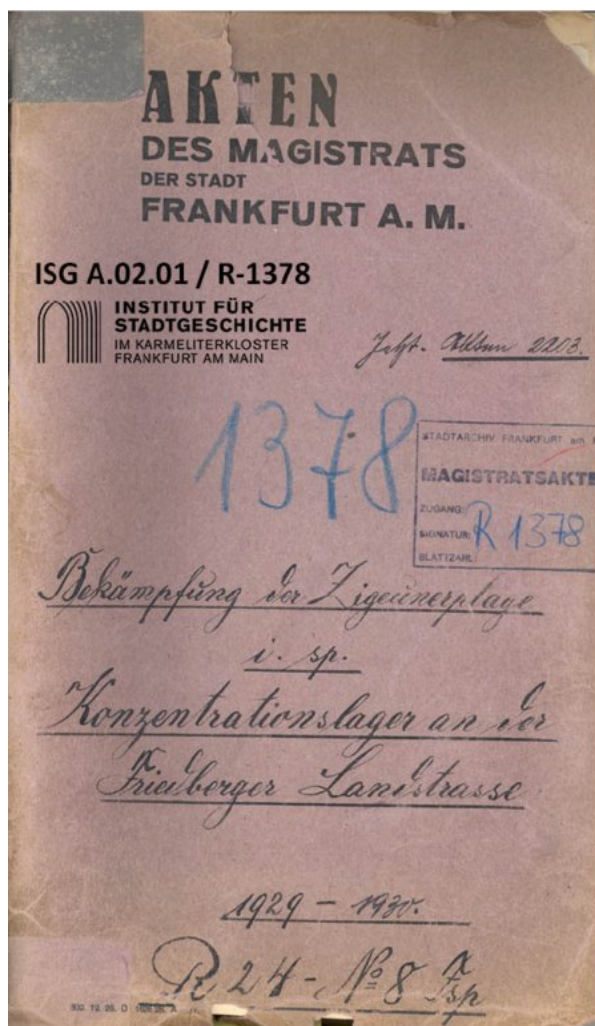 AKTEN
DES MAGISTRATS
DER STADT
FRANKFURT A. M.
ISG A.02.01 / R-1378
INSTITUT FÜR
STADTGESCHICHTE
IM KARMELITERKLOSTER
FRANKFURT AM MAIN
Jetzt. Akten 2203.
1378
STADTARCHIV FRANKFURT am
MAGISTRATSAKTE
ZUGANG:
SIGNATUR: R 1378
BLATTZAHL:
Bekämpfung der Zigeunerplage
i. sp.
Konzentrationslager an der
Friedberger Landstrasse
1929 - 1930.
R 24 - No 8